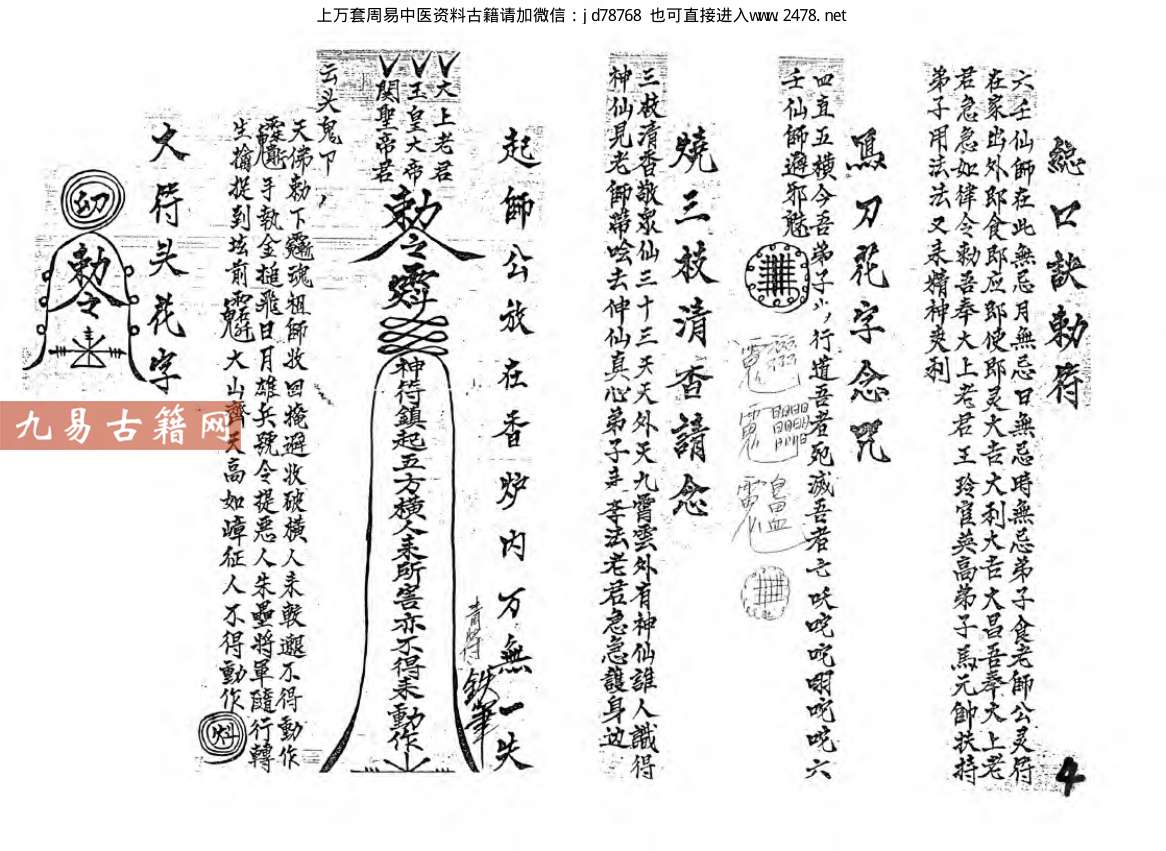 上万套周易中医资料古籍请加微信：jd78768 也可直接进入www.2478.net
總口訣勅符
六壬仙師在此無忌月無忌日無忌時無忌弟子食老師公灵符
在家出外即食即应即使即灵大吉大利大吉大昌吾奉大上老
君急急如律令勅吾奉大上老君王玲官英高弟子馬元帥扶持
弟子用法法又来精神爽利
馬刀花字念咒
四直五横今吾弟子行道吾者死滅吾者亡吠咤咤咤咤六
壬仙師避邪魅
燒三枝清香請念
三枝清香敬衆仙三十三天天外天九霄雲外有神仙誰人識得
神仙見老師常唫去伸仙真心弟子来李法老君急急護身边
起師公放在香炉内万無一失
青符
鉄筆
大上老君
玉皇大帝
関聖帝君
勅令
神符鎮起五方横人来所害亦不得来動作
云头鬼下
天佛勅下魂祖師收回掩避收破横人来較邇不得動作
手執金槌飛日月雄兵號令提恶人朱壘將軍隨行轉
生擒捉到坛前大山齊天高如嶂征人不得動作
大符头花字
勅令
九易古籍网
4